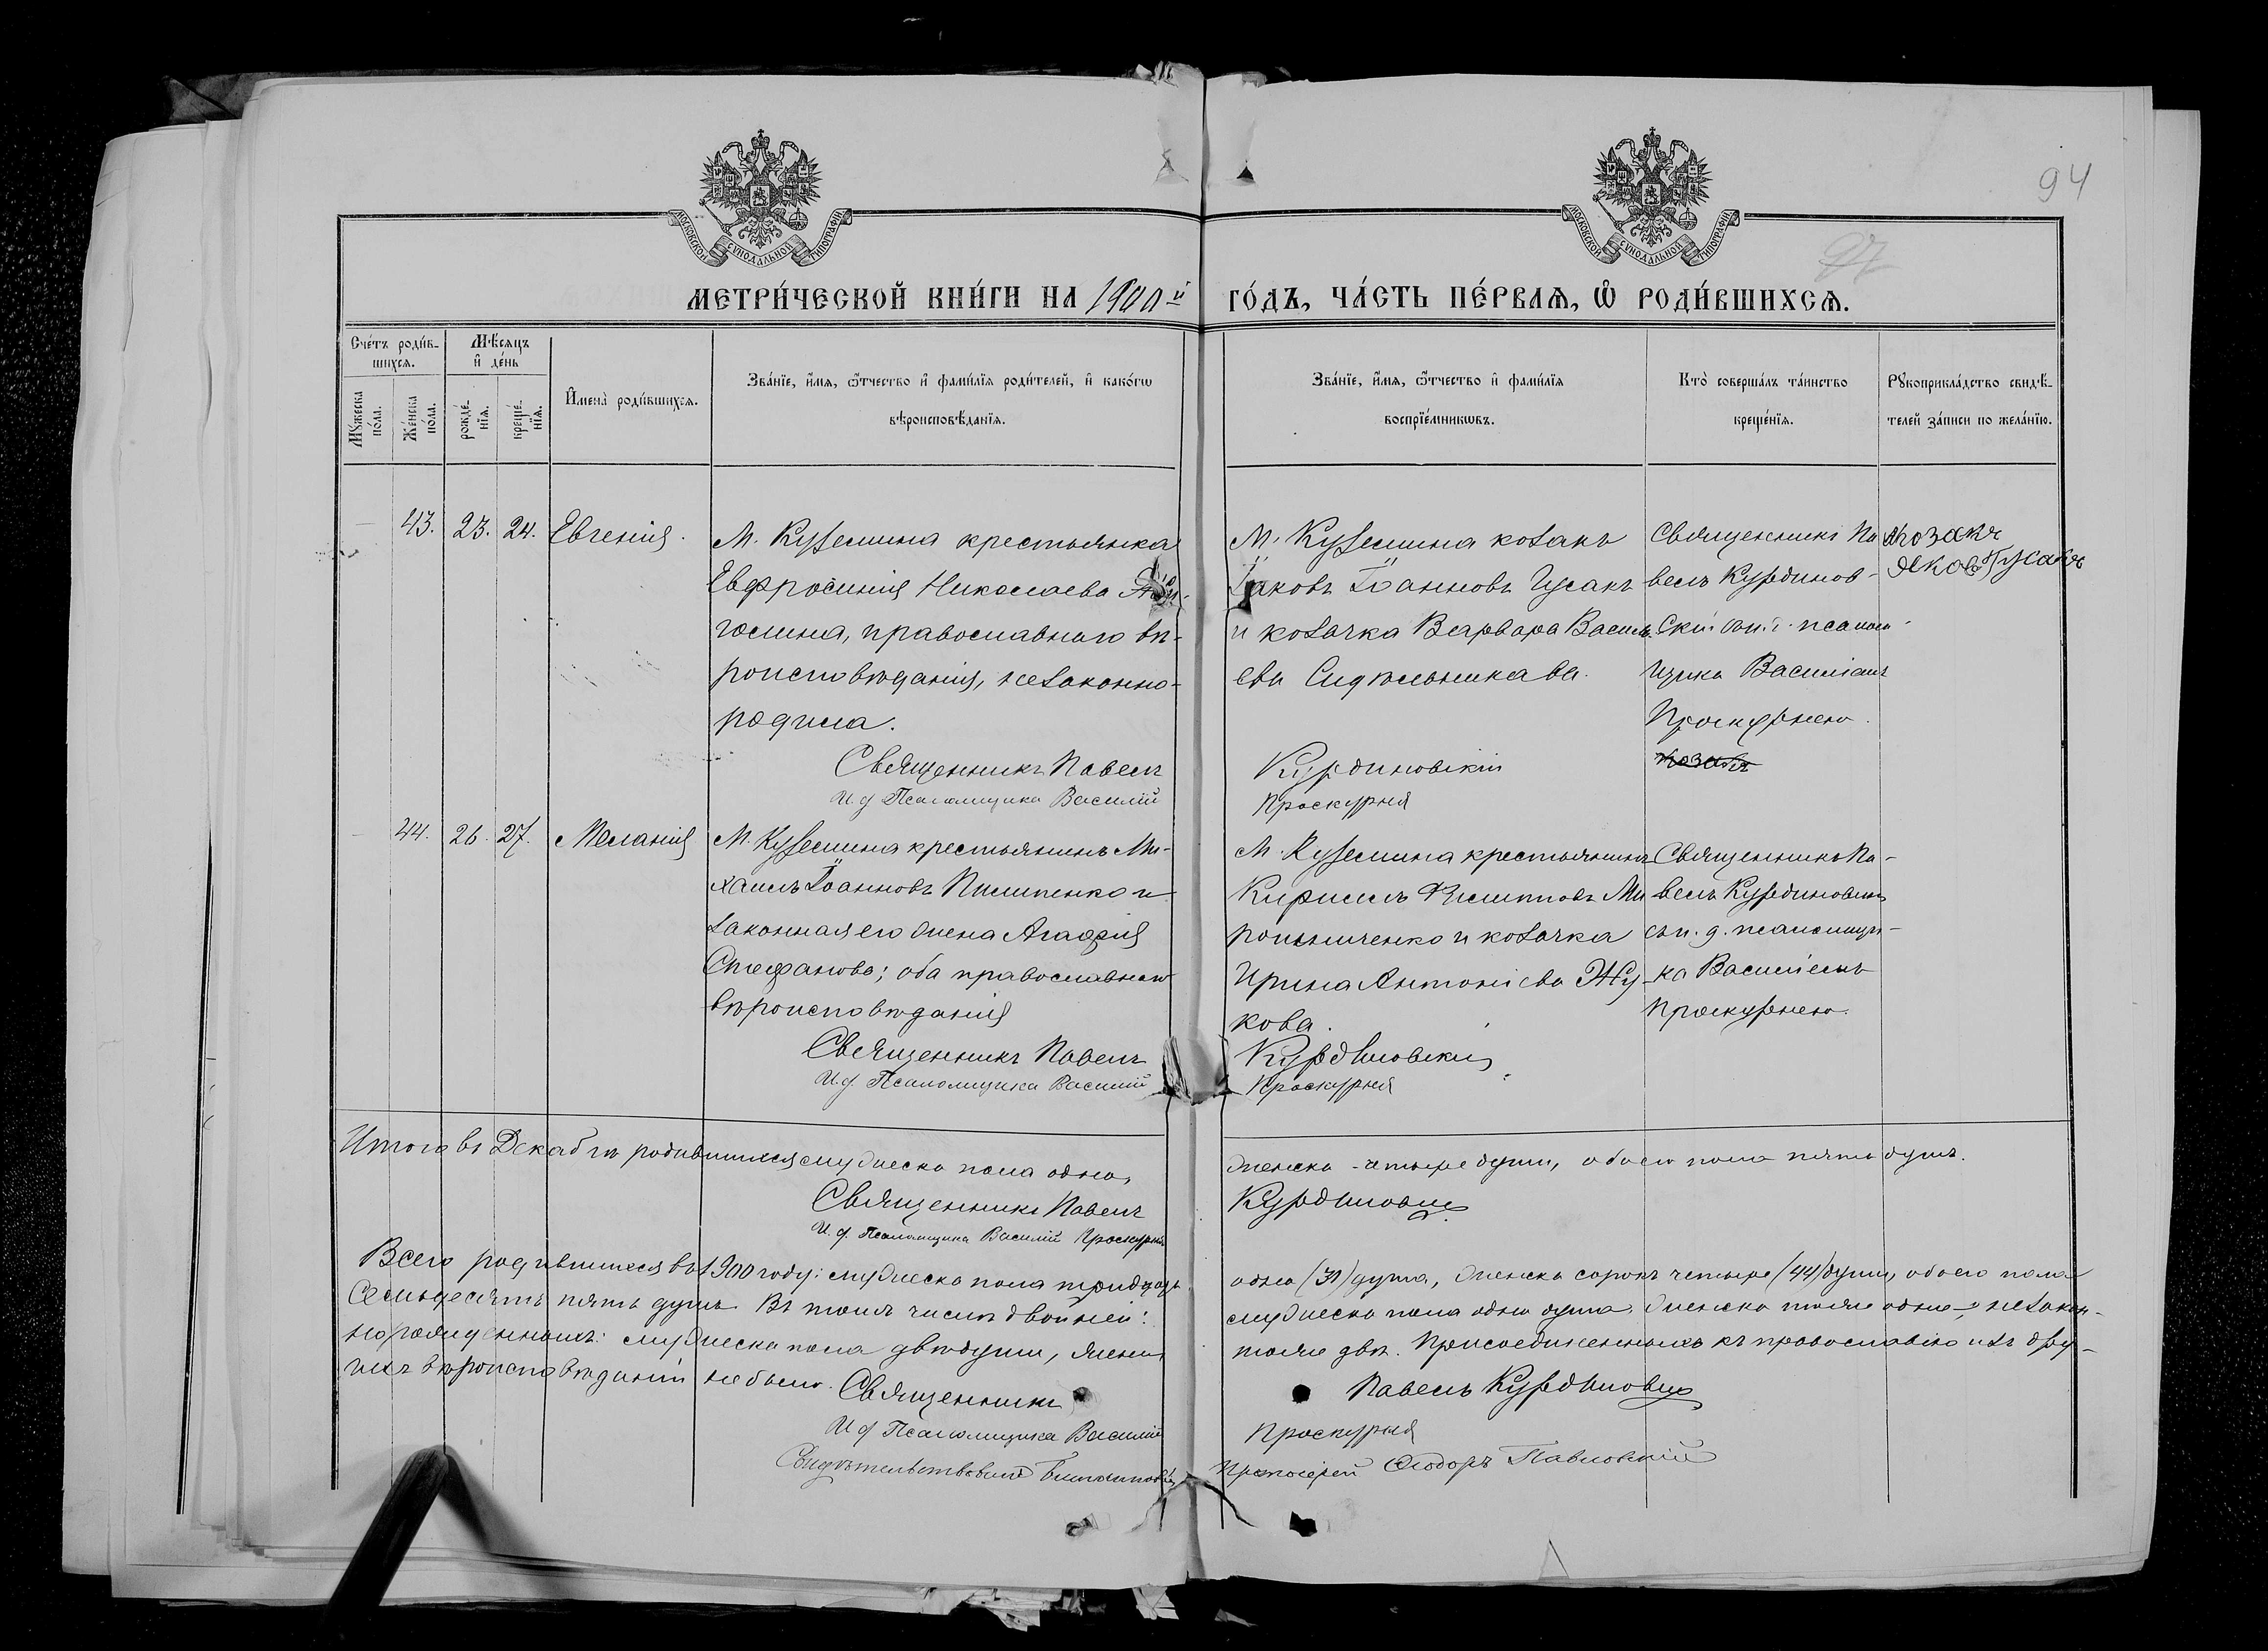 94
97
МОСКОВСКОЙ СѴНОДАЛЬНОЙ ТИПОГРАФІИ
МОСКОВСКОЙ СѴНОДАЛЬНОЙ ТИПОГРАФІИ
МЕТРИ́ЧЕСКОЙ КНИ́ГИ НА 1900й ГО́ДЪ, ЧА́СТЬ ПЕ́РВАѦ, Ѡ҆ РОДИ́ВШИХСѦ.
Сче́тъ роди́в-
шихсѧ.
Мꙋ́жеска
по́ла.
Же́нска
по́ла.
Мѣ́сѧцъ
и҆ де́нь
рожде́-
нїѧ.
креще́-
нїѧ.
И҆мена̀ роди́вшихсѧ.
Зва́нїе, и҆́мѧ, ѻ҆́тчество и҆ фами́лїѧ роди́телей, и҆ како́гѡ
вѣроисповѣ́данїѧ.
Зва́нїе, и҆́мѧ, ѻ҆́тчество и҆ фами́лїѧ
воспрїе́мникѡвъ.
Кто̀ соверша́лъ та́инство
креще́нїѧ.
Рꙋкоприкла́дство свидѣ́-
телей за́писи по жела́нїю.
43. 23. 24. Евгенія.
М. Куземина крестьянка
Евфросинія Николаева
голина, православнаго вѣ-
роисповѣданія, незаконно-
родила.
М. Куземина козакъ
Іаковъ Іоанновъ Гусакъ
и козачка Варвара Василь-
ева Сидѣльникова.
Священникъ Па
велъ Курдинов-
скій съ и. д. псалом-
щика Василіемъ
Проскурнею.
козакъ
козакъ
Яковъ Гусакъ
Священникъ Павелъ Курдиновскій
И. д. Псаломщика Василій Проскурня
44. 26. 27. Меланія
М. Куземина крестьянинъ Ми-
хаилъ Іоанновъ Пилипенко и
законная его жена Агафія
Стефанова; оба православнаго
вѣроисповѣданія
М. Куземина крестьянинъ
Кириллъ Филипповъ Ми
рошниченко и козачка
Ирина Антоніева Жу-
кова.
Священникъ Па-
велъ Курдиновскій
съ и. д. псаломщи-
ка Василіемъ
Проскурнею.
Священникъ Павелъ Курдиновскій
И. д. Псаломщика Василій Проскурня
Итого въ Декабрѣ родившихся мужеска пола одно, женска - четыре души, обоего пола пять душъ.
Священникъ Павелъ Курдиновскій
И. д. Псаломщика Василій Проскурня
Всего родившихся въ 1900 году: мужеска пола тридцать одна (31) душа, женска сорокъ четыре (44) души, обоего пола
семьдесятъ пять душъ. Въ томъ числѣ двойней: мужеска пола одна душа, женска тоже одна; незакон-
норожденныхъ: мужеска пола двѣ души, женск. тоже двѣ. Присоединенныхъ къ православію изъ дру-
гихъ вѣроисповѣданій не было. Священникъ Павелъ Курдиновскій
И. д. Псаломщика Василій Проскурня
Свидѣтельствовалъ Благочинный Протоіерей Ѳеодоръ Павловскій